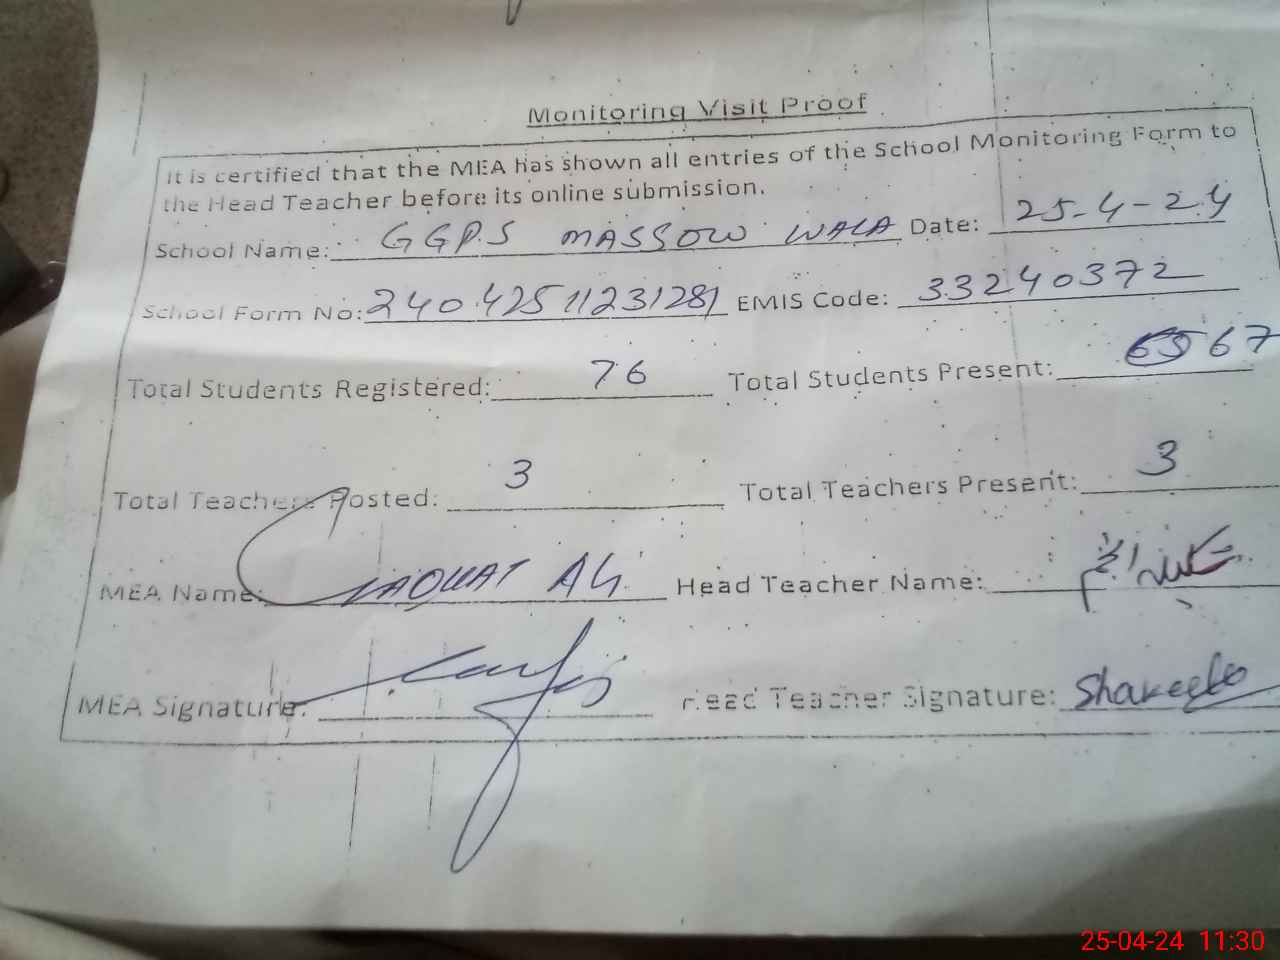 Monitoring Visit Proof
It is certified that the MEA has shown all entries of the School Monitoring Form to
the Head Teacher before its online submission.
School Name: GGPS MASSOW WALA Date: 25-4-24
School Form No: 24042511231281 EMIS Code: 33240372
Total Students Registered: 76 Total Students Present: 67
Total Teachers Posted: 3 Total Teachers Present: 3
MEA Name: LAQUAT ALi Head Teacher Name:
MEA Signature: Head Teacher Signature: Shakeela
25-04-24 11:30